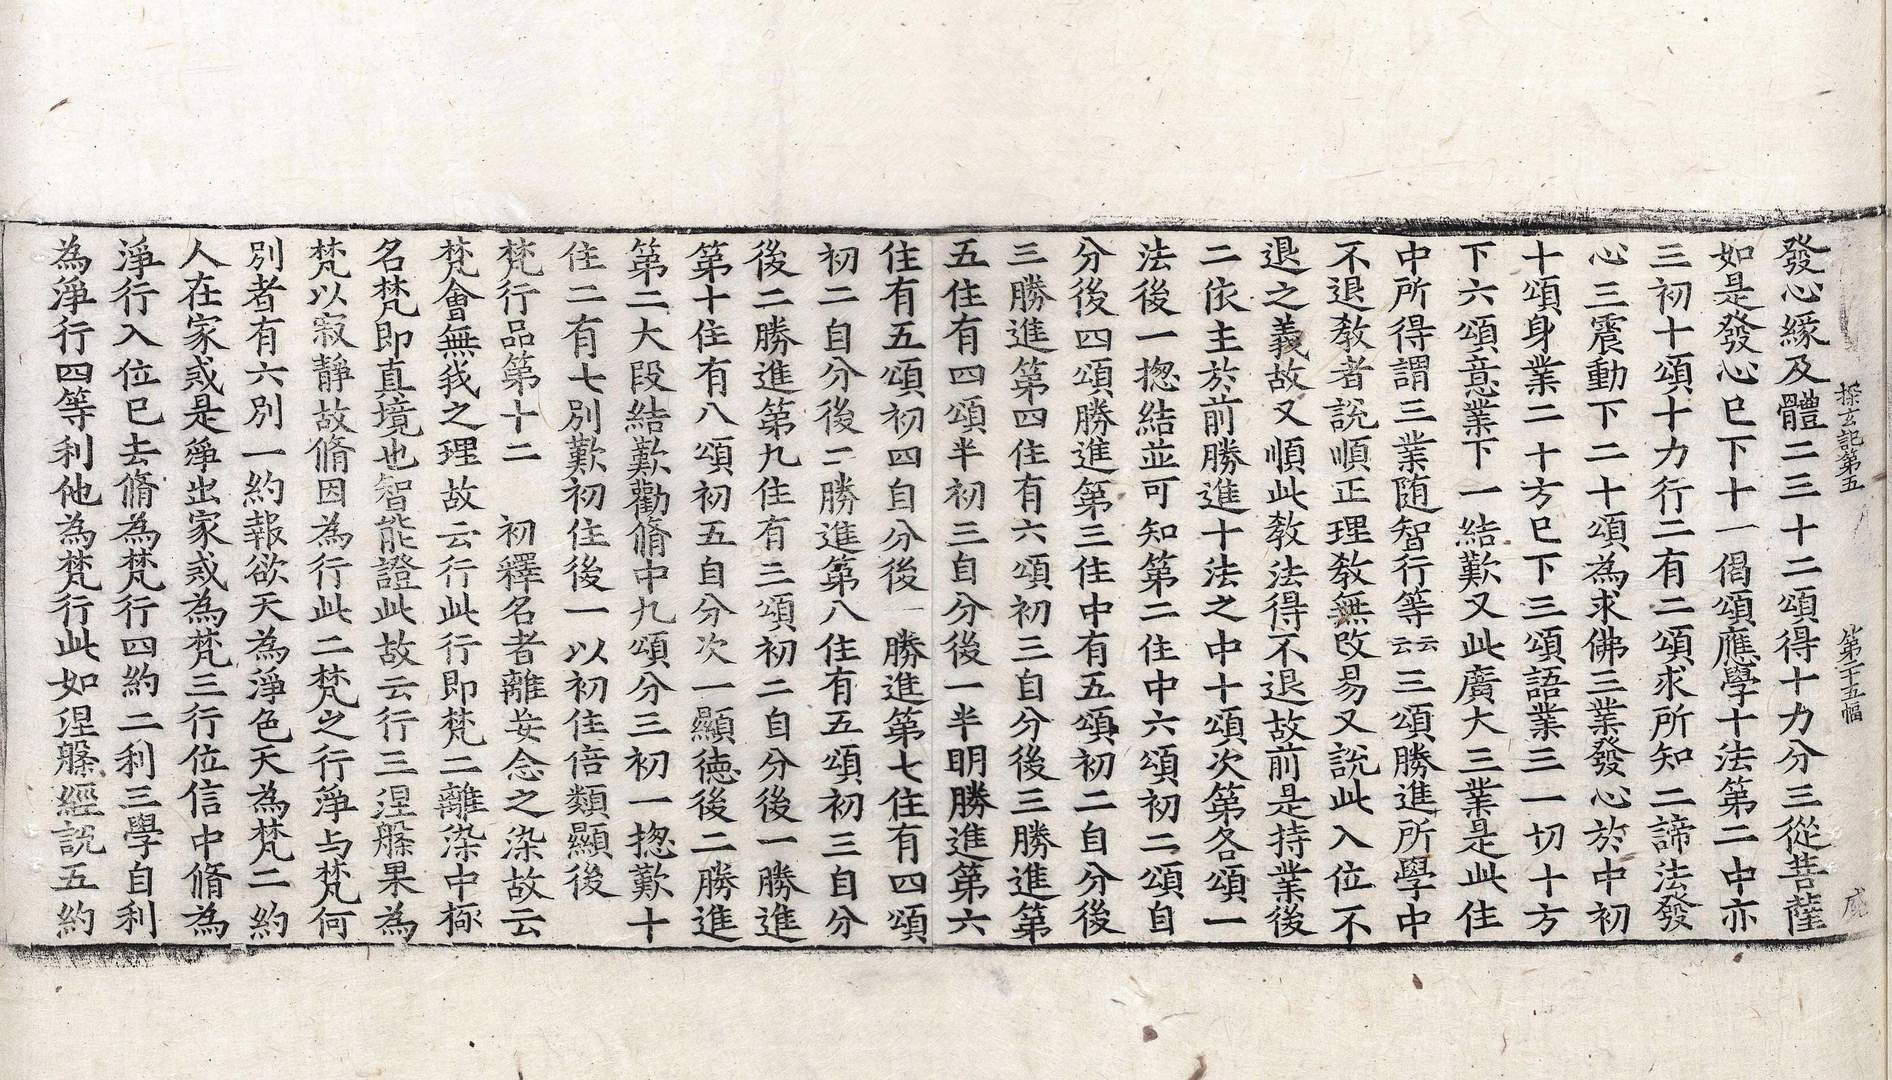 探玄記第五 第二十五幅
發心緣及體二三十二頌得十力分三從菩薩
如是發心已下十一偈頌應學十法第二中亦
三初十頌十力行二有二頌求所知二諦法發
心三震動下二十頌為求佛三業發心於中初
十頌身業二十方已下三頌語業三一切十方
下六頌意業下一結歎又此廣大三業是此住
中所得謂三業随智行等云云三頌勝進所學中
不退教者說順正理教無改易又說此入位不
退之義故又順此教法得不退故前是持業後
二依主於前勝進十法之中十頌次第各頌一
法後一揔結並可知第二住中六頌初二頌自
分後四頌勝進第三住中有五頌初二自分後
三勝進第四住有六頌初三自分後三勝進第
五住有四頌半初三自分後一半明勝進第六
住有五頌初四自分後一勝進第七住有四頌
初二自分後二勝進第八住有五頌初三自分
後二勝進第九住有三頌初二自分後一勝進
第十住有八頌初五自分次一顯徳後二勝進
第二大段結歎勸脩中九頌分三初一揔歎十
住二有七別歎初住後一以初住倍類顯後
梵行品第十二 初釋名者離妄念之染故云
梵會無我之理故云行此行即梵二離染中極
名梵即真境也智能證此故云行三涅槃果為
梵以寂靜故脩因為行此二梵之行淨与梵何
別者有六別一約報欲天為淨色天為梵二約
人在家或是淨出家或為梵三行位信中脩為
淨行入位已去脩為梵行四約二利三學自利
為淨行四等利他為梵行此如涅槃經說五約